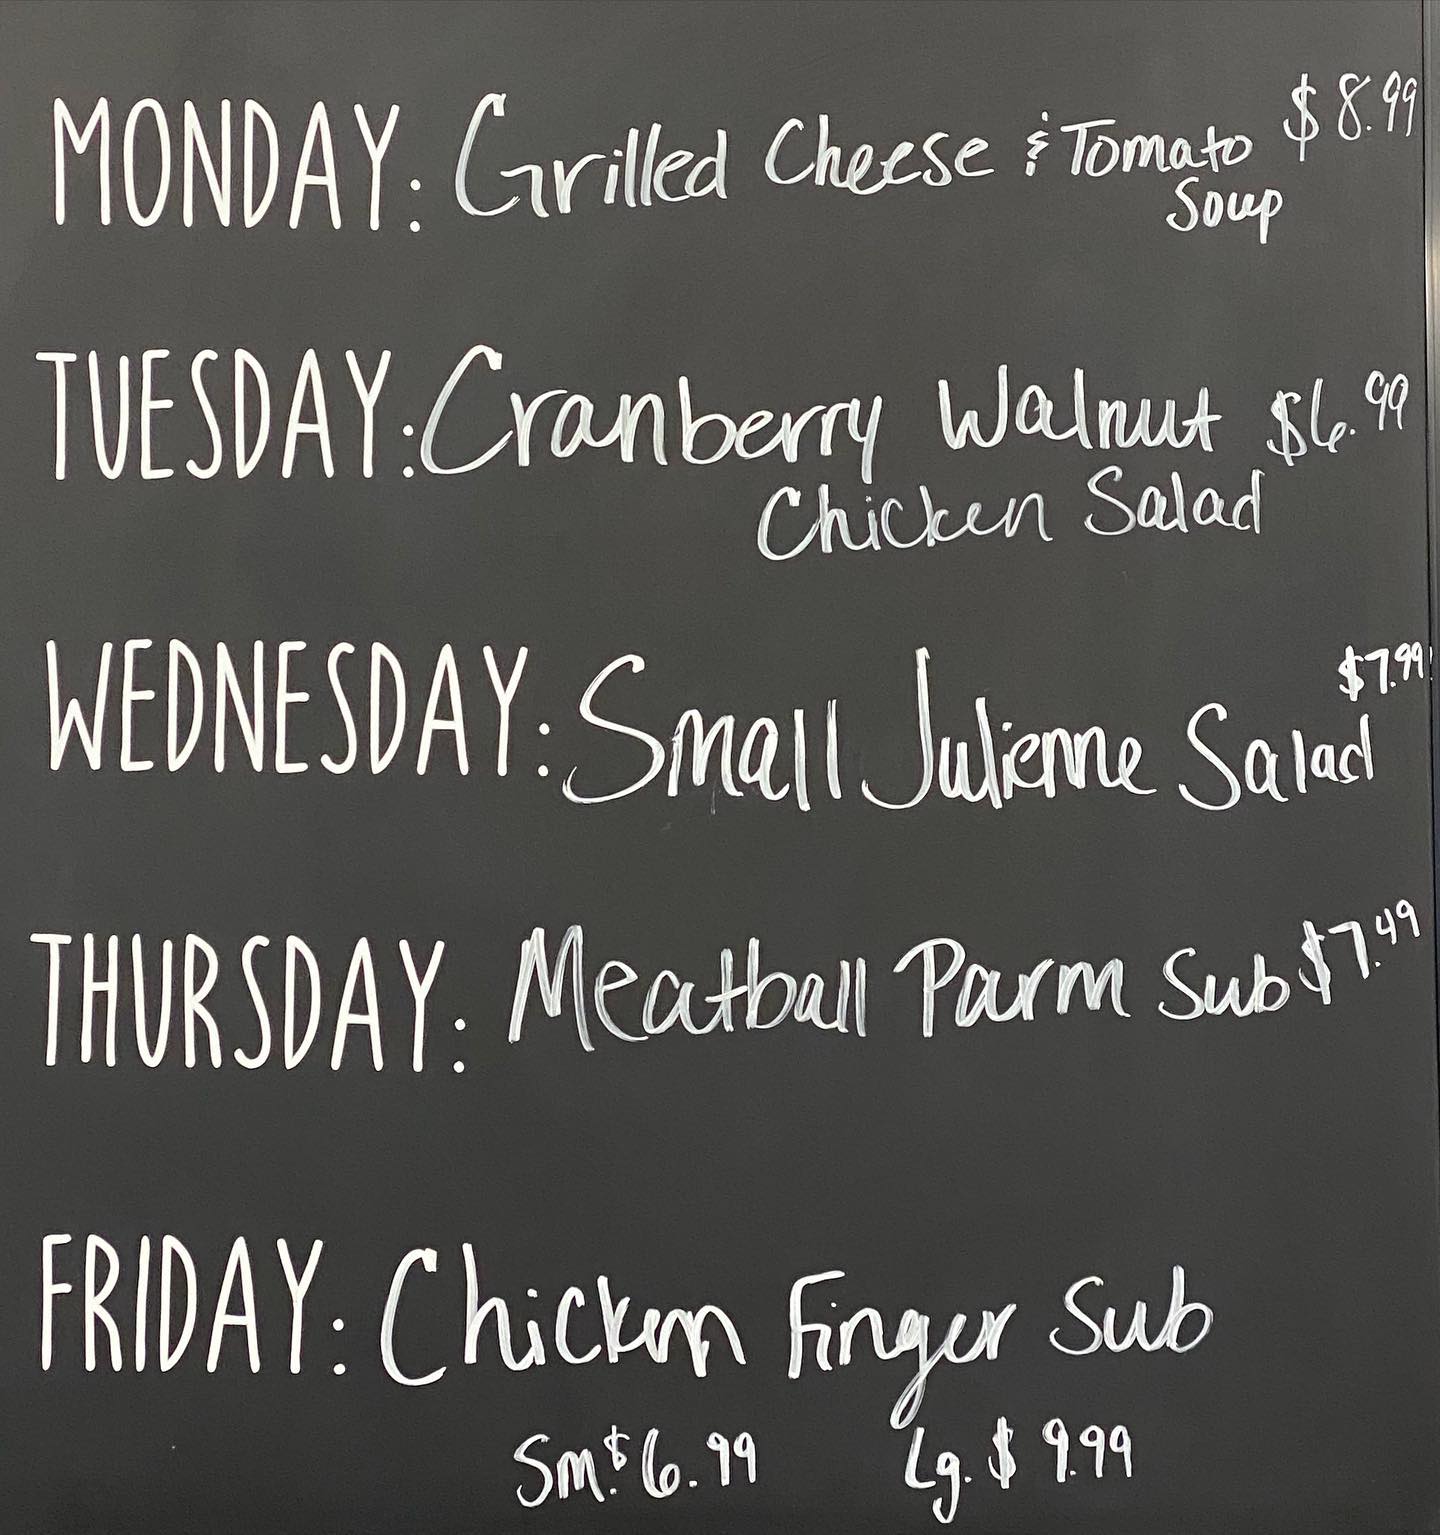 MONDAY: Grilled Cheese & Tomato $8.99
Soup
TUESDAY: Cranberry Walnut $6.99
Chicken Salad
WEDNESDAY: Small Julienne Salad $7.99
THURSDAY: Meatball Parm Sub $7.49
FRIDAY: Chicken Finger Sub
Sm. $6.99 Lg. $9.99